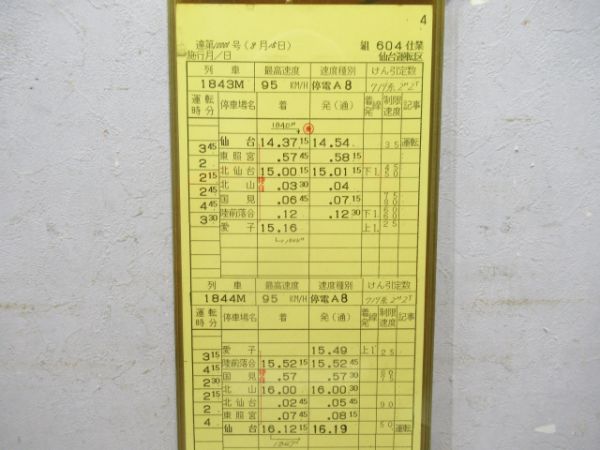 4
達第1000号(8月15日) 組 604 仕業
施行月/日 仙台運転区
列車 最高速度 速度種別 けん引定数
1843M 95 KM/H 停電A8 719系 2M2T
運転時分 停車場名 着 発(通) 着発線 制限速度 記事
1840M
仙台 14.37 15 14.54 35 運転
3 45
東照宮 .57 45 .58 15
2
北仙台 15.00 15 15.01 15 下1
2 15
北山 .03 30 .04
2 45
国見 .06 45 .07 15 75
4 45
陸前落合 .12 .12 30 下1
3 30
愛子 15.16 上1 25
列車 最高速度 速度種別 けん引定数
1844M 95 KM/H 停電A8 719系 2M2T
運転時分 停車場名 着 発(通) 着発線 制限速度 記事
愛子 15.49 上1 25
3 15
陸前落合 15.52 15 15.52 45
4 15
国見 .57 .57 30
2 30
北山 16.00 16.00 30
2
北仙台 .02 45 .05 45 90
2
東照宮 .07 45 .08 15
4
仙台 16.12 15 16.19 50 運転